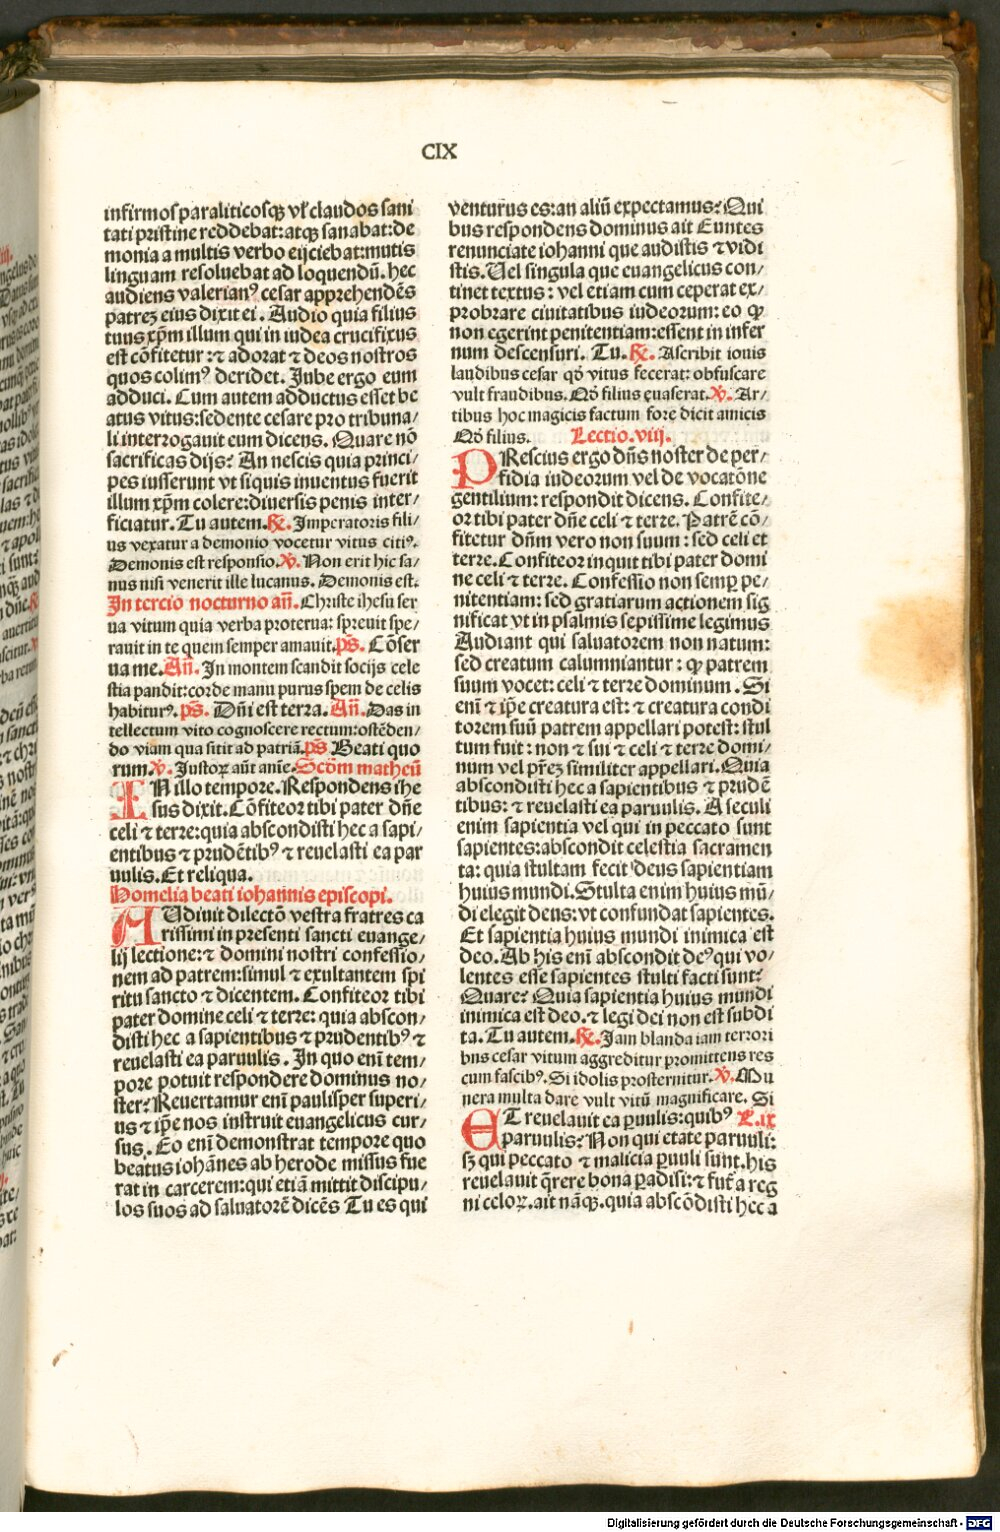 CIX
infirmos paraliticosqꝫ vł claudos sani
tati pristine reddebat: atqꝫ sanabat: de
monia a multis verbo eijciebat: mutis
linguam resoluebat ad loquendũ. hec
audiens valerianꝰ cesar apprehendẽs
patreꝫ eius dixit ei. Audio quia filius
tuus xp̃m illum qui in iudea crucifixus
est cõfitetur: ⁊ adorat ⁊ deos nostros
quos colimꝰ deridet. Jube ergo eum
adduci. Cum autem adductus esset be
atus vitus: sedente cesare pro tribuna/
li interrogauit eum dicens. Quare nõ
sacrificas dijs? An nescis quia princi/
pes iusserunt vt siquis inuentus fuerit
illum xp̃m colere: diuersis penis inter/
ficiatur. Tu autem. R̃. Imperatoris fili/
us vexatur a demonio vocetur vitus citiꝰ.
Demonis est responsio. V̊. Non erit hic sa/
nus nisi venerit ille lucanus. Demonis est.
In tercio nocturno añ. Christe ihesu ser
ua vitum quia verba proterua: spreuit spe/
rauit in te quem semper amauit. ps̃. Cõser
ua me. Añ. In montem scandit socijs cele
stia pandit: corde manu purus spem de celis
habiturꝰ. ps̃. Dñi est terra. Añ. Das in
tellectum vito cognoscere rectum: ostẽden/
do viam qua sitit ad patriã. ps̃ Beati quo
rum. V̊. Justoꝝ aũt anie. Scðm matheũ
IN illo tempore. Respondens ihe
sus dixit. Cõfiteor tibi pater dñe
celi ⁊ terre: quia abscondisti hec a sapi/
entibus ⁊ prudẽtibꝰ ⁊ reuelasti ea par
uulis. Et reliqua.
Homelia beati iohannis episcopi.
AUdiuit dilectõ vestra fratres ca
rissimi in presenti sancti euange/
lij lectione: ⁊ domini nostri confessio/
nem ad patrem: simul ⁊ exultantem spi
ritu sancto ⁊ dicentem. Confiteor tibi
pater domine celi ⁊ terre: quia abscon/
disti hec a sapientibus ⁊ prudentibꝰ ⁊
reuelasti ea paruulis. In quo enĩ tem/
pore potuit respondere dominus no/
ster? Reuertamur enĩ paulisper superi/
us ⁊ ip̃e nos instruit euangelicus cur/
sus. Eo enĩ demonstrat tempore quo
beatus iohãnes ab herode missus fue
rat in carcerem: qui etiã mittit discipu/
los suos ad saluatorẽ dicẽs Tu es qui
venturus es: an aliũ expectamus? Qui
bus respondens dominus ait Euntes
renunciate iohanni que audistis ⁊ vidi
stis. Uel singula que euangelicus con/
tinet textus: vel etiam cum ceperat ex/
probrare ciuitatibus iudeorum: eo ꝙ
non egerint penitentiam: essent in infer
num descensuri. Tu. R̃. Ascribit iouis
laudibus cesar qð vitus fecerat: obfuscare
vult fraudibus. Qð filius euaserat. V̊. Ar/
tibus hoc magicis factum fore dicit amicis
Qð filius. Lectio. viij.
PRescius ergo dñs noster de per/
fidia iudeorum vel de vocatõne
gentilium: respondit dicens. Confite/
or tibi pater dñe celi ⁊ terre. Patrẽ cõ/
fitetur dñm vero non suum: sed celi et
terre. Confiteor inquit tibi pater domi
ne celi ⁊ terre. Confessio non semꝑ pe/
nitentiam: sed gratiarum actionem sig
nificat vt in psalmis sepissime legimus
Audiant qui saluatorem non natum:
sed creatum calumniantur: ꝙ patrem
suum vocet: celi ⁊ terre dominum. Si
enĩ ⁊ ip̃e creatura est: ⁊ creatura condi
torem suũ patrem appellari potest: stul
tum fuit: non ⁊ sui ⁊ celi ⁊ terre domi/
num vel p̃reꝫ similiter appellari. Quia
abscondisti hec a sapientibus ⁊ prudẽ
tibus: ⁊ reuelasti ea paruulis. A seculi
enim sapientia vel qui in peccato sunt
sapientes: abscondit celestia sacramen
ta: quia stultam fecit deus sapientiam
huius mundi. Stulta enim huius mũ/
di elegit deus: vt confundat sapientes.
Et sapientia huius mundi inimica est
deo. Ab his enĩ abscondit deꝰ qui vo/
lentes esse sapientes stulti facti sunt?
Quare? Quia sapientia huius mundi
inimica est deo. ⁊ legi dei non est subdi
ta. Tu autem. R̃. Jam blanda iam terrori
bus cesar vitum aggreditur promittens res
cum fascibꝰ. Si idolis prosternitur. V̊. Mu
nera multa dare vult vitũ magnificare. Si
ET reuelauit ea ꝑuulis: quibꝰ L. ix
paruulis? Non qui etate paruuli:
sꝫ qui peccato ⁊ malicia ꝑuuli sunt. his
reuelauit q̃rere bona ꝑadisi: ⁊ fut̃a reg
ni celoꝝ. ait nãqꝫ. quia abscõdisti hec a
Digitalisierung gefördert durch die Deutsche Forschungsgemeinschaft - DFG